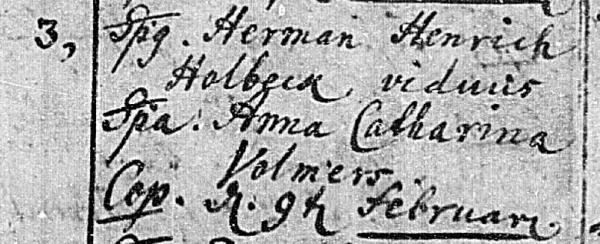 3, Spg. Herman Henrich
Holbeck viduus
Spa. Anna Catharina
Volmers
Cop. d. 9t Februari.